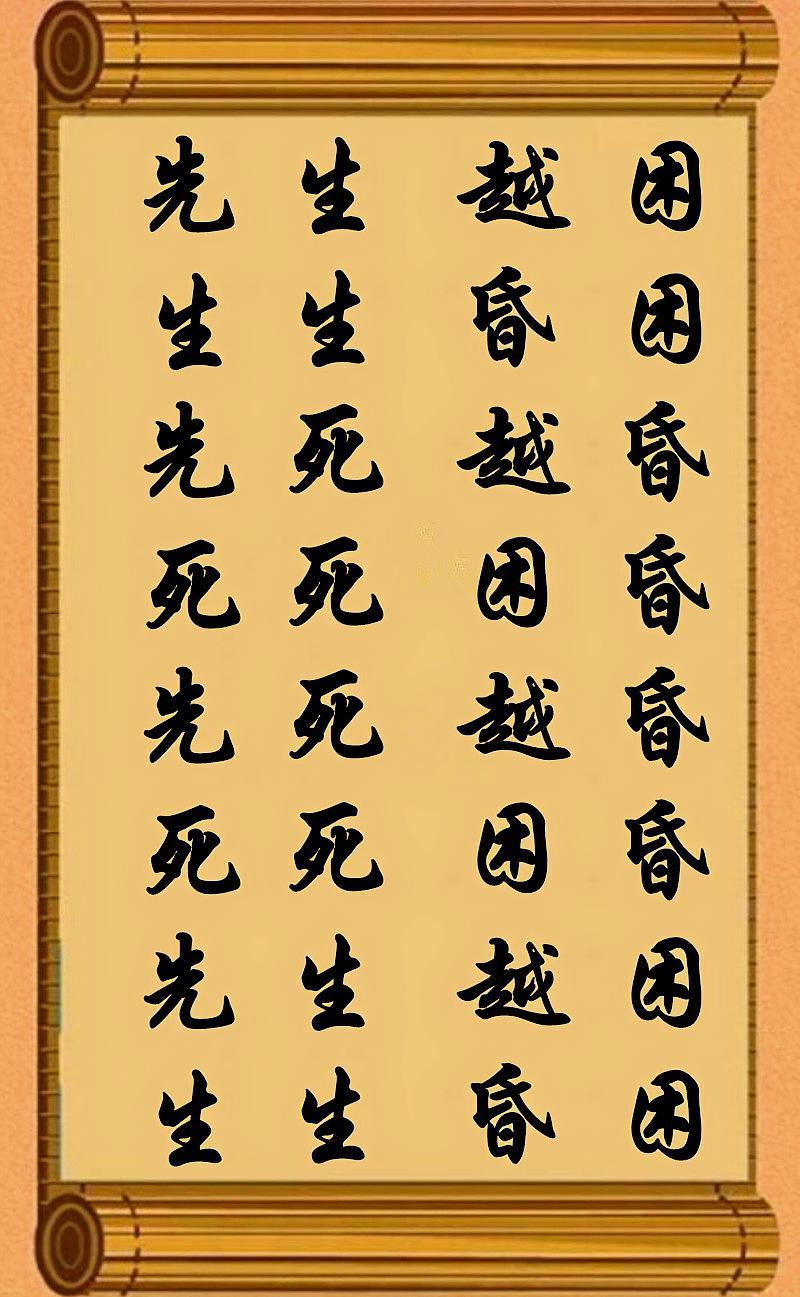 困困昏昏昏昏困困
越昏越困越困越昏
生生死死死死生生
先生先死先死先生